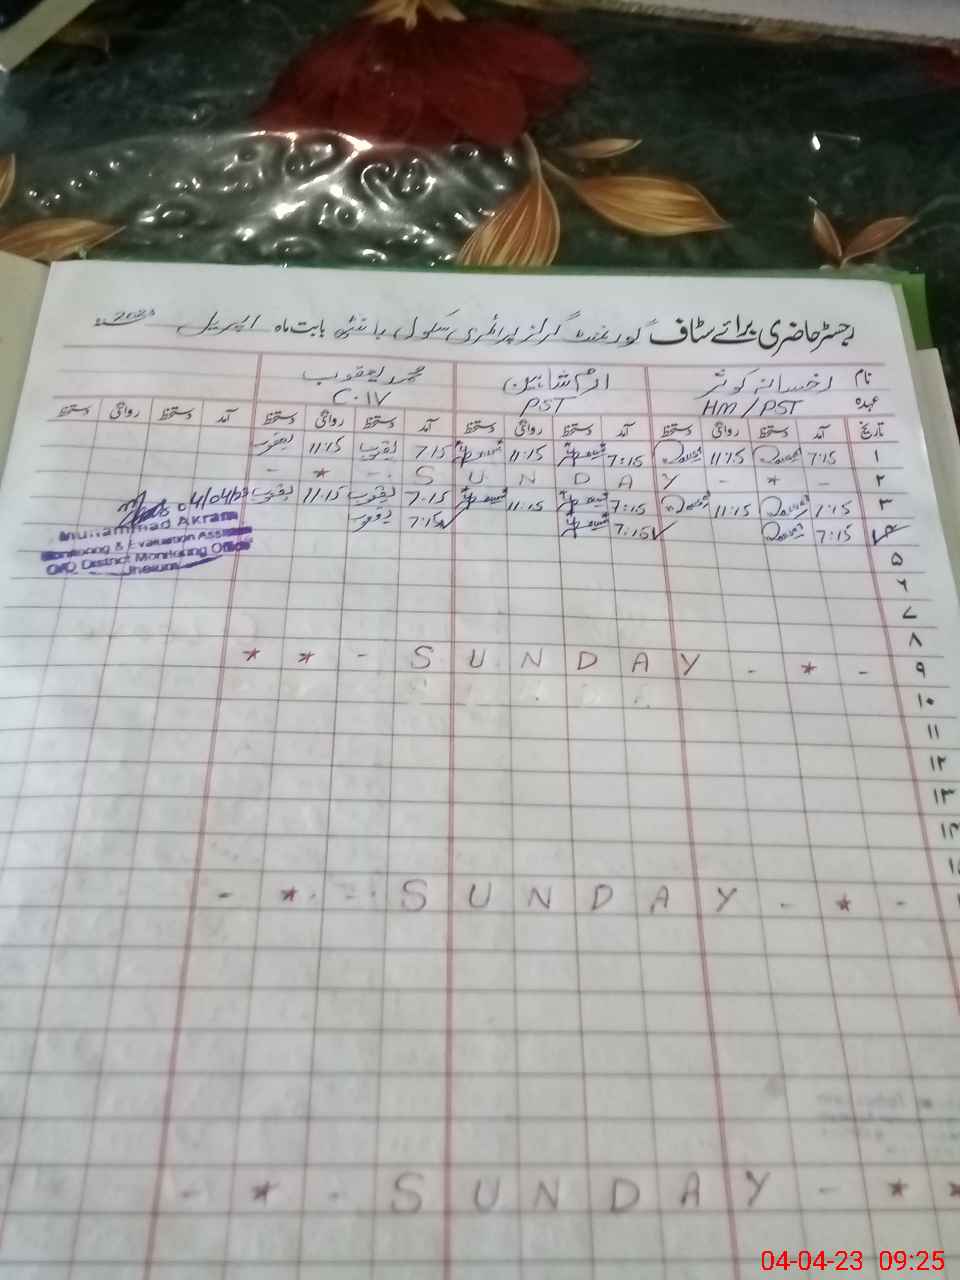 رجسٹر حاضری برائے سٹاف گورنمنٹ گرلز پرائمری سکول بابت ماہ اپریل 2023
نام رخسانہ کوثر ارم شاہین محمد یعقوب
عہدہ HM/PST PST C.IV
تاریخ آمد دستخط روانگی دستخط آمد دستخط روانگی دستخط آمد دستخط روانگی دستخط آمد دستخط روانگی دستخط
۱ 7:15 11:15 7:15 11:15 7:15 یعقوب 11:15 یعقوب
۲ - * - Y A D N U S - * -
۳ 7:15 11:15 7:15 11:15 7:15 یعقوب 11:15 یعقوب
۴ 7:15 7:15 ✓ 7:15 ✓ یعقوب
04/04/23
Muhammad Akram
Monitoring & Evaluation Assistant
O/O District Monitoring Office
Jhelum
۵
۶
۷
۸
۹ * * - S U N D A Y - * -
۱۰
۱۱
۱۲
۱۳
۱۴
- * - - S U N D A Y - * -
- * - S U N D A Y - * *
04-04-23 09:25